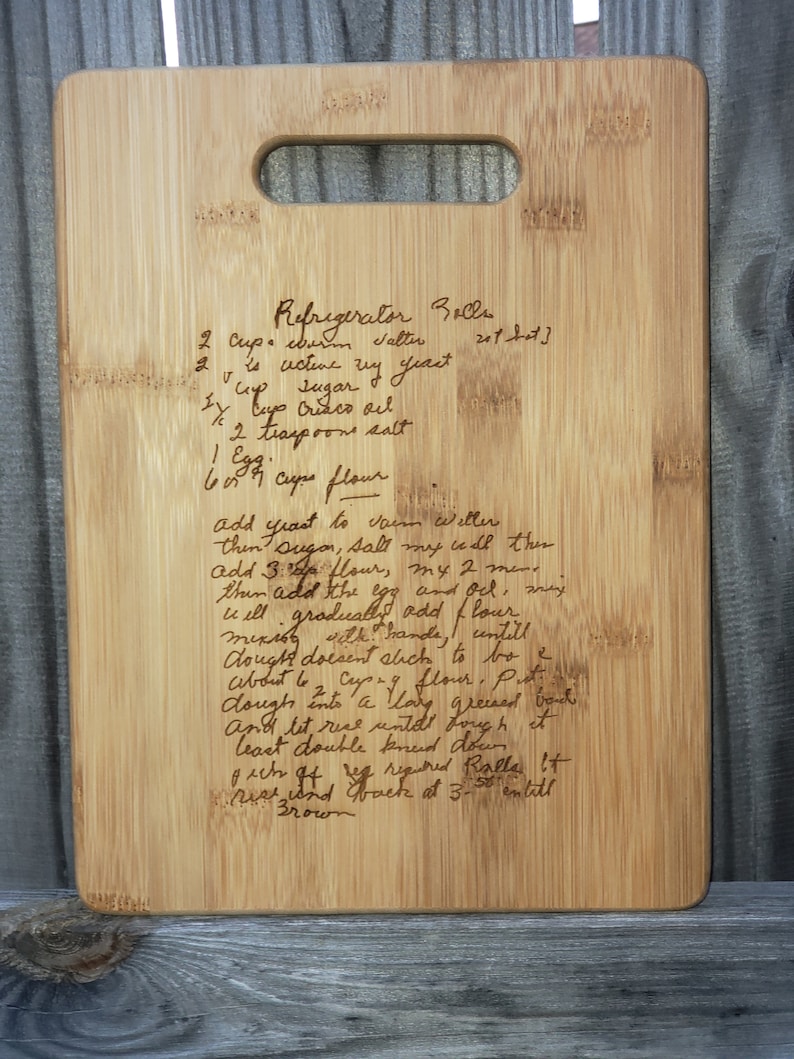 Refrigerator Rolls
2 cups warm watter not hot]
2 active dry yeast
cup sugar
cup Crisco oil
2 teaspoons salt
1 Egg.
6 or 7 cups flour
add yeast to warm watter
then sugar, salt mix well then
add 3 cup flour, mix 2 min.
then add the egg and oil. mix
well gradually add flour
mixing with hands, untill
dough doesent stick to
about 6 cups flour. Put
dough into a larg greased
and let rise untill dough
least double knead down
required Rolls let
rise and back at 350 untill
Brown